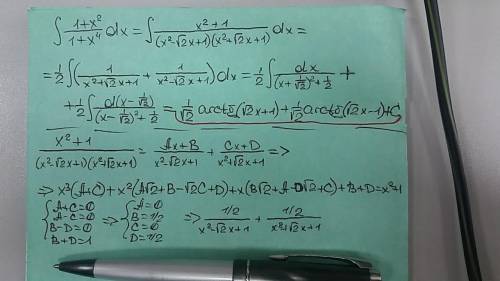 ∫ (1+x²)/(1+x⁴) dx = ∫ (x²+1)/((x²-√2x+1)(x²+√2x+1)) dx =
= 1/2 ∫ (1/(x²+√2x+1) + 1/(x²-√2x+1)) dx = 1/2 ∫ dx/((x+1/√2)²+1/2) +
+ 1/2 ∫ d(x-1/√2)/((x-1/√2)²+1/2) = 1/√2 arctg(√2x+1) + 1/√2 arctg(√2x-1) + C
(x²+1)/((x²-√2x+1)(x²+√2x+1)) = (Ax+B)/(x²-√2x+1) + (Cx+D)/(x²+√2x+1) =>
=> x³(A+C) + x²(A√2+B-√2C+D) + x(B√2+A-D√2+C) + B+D = x²+1
{ A+C=0 => { A=0 => (1/2)/(x²-√2x+1) + (1/2)/(x²+√2x+1)
A-C=0 B=1/2
B-D=0 C=0
B+D=1 D=1/2